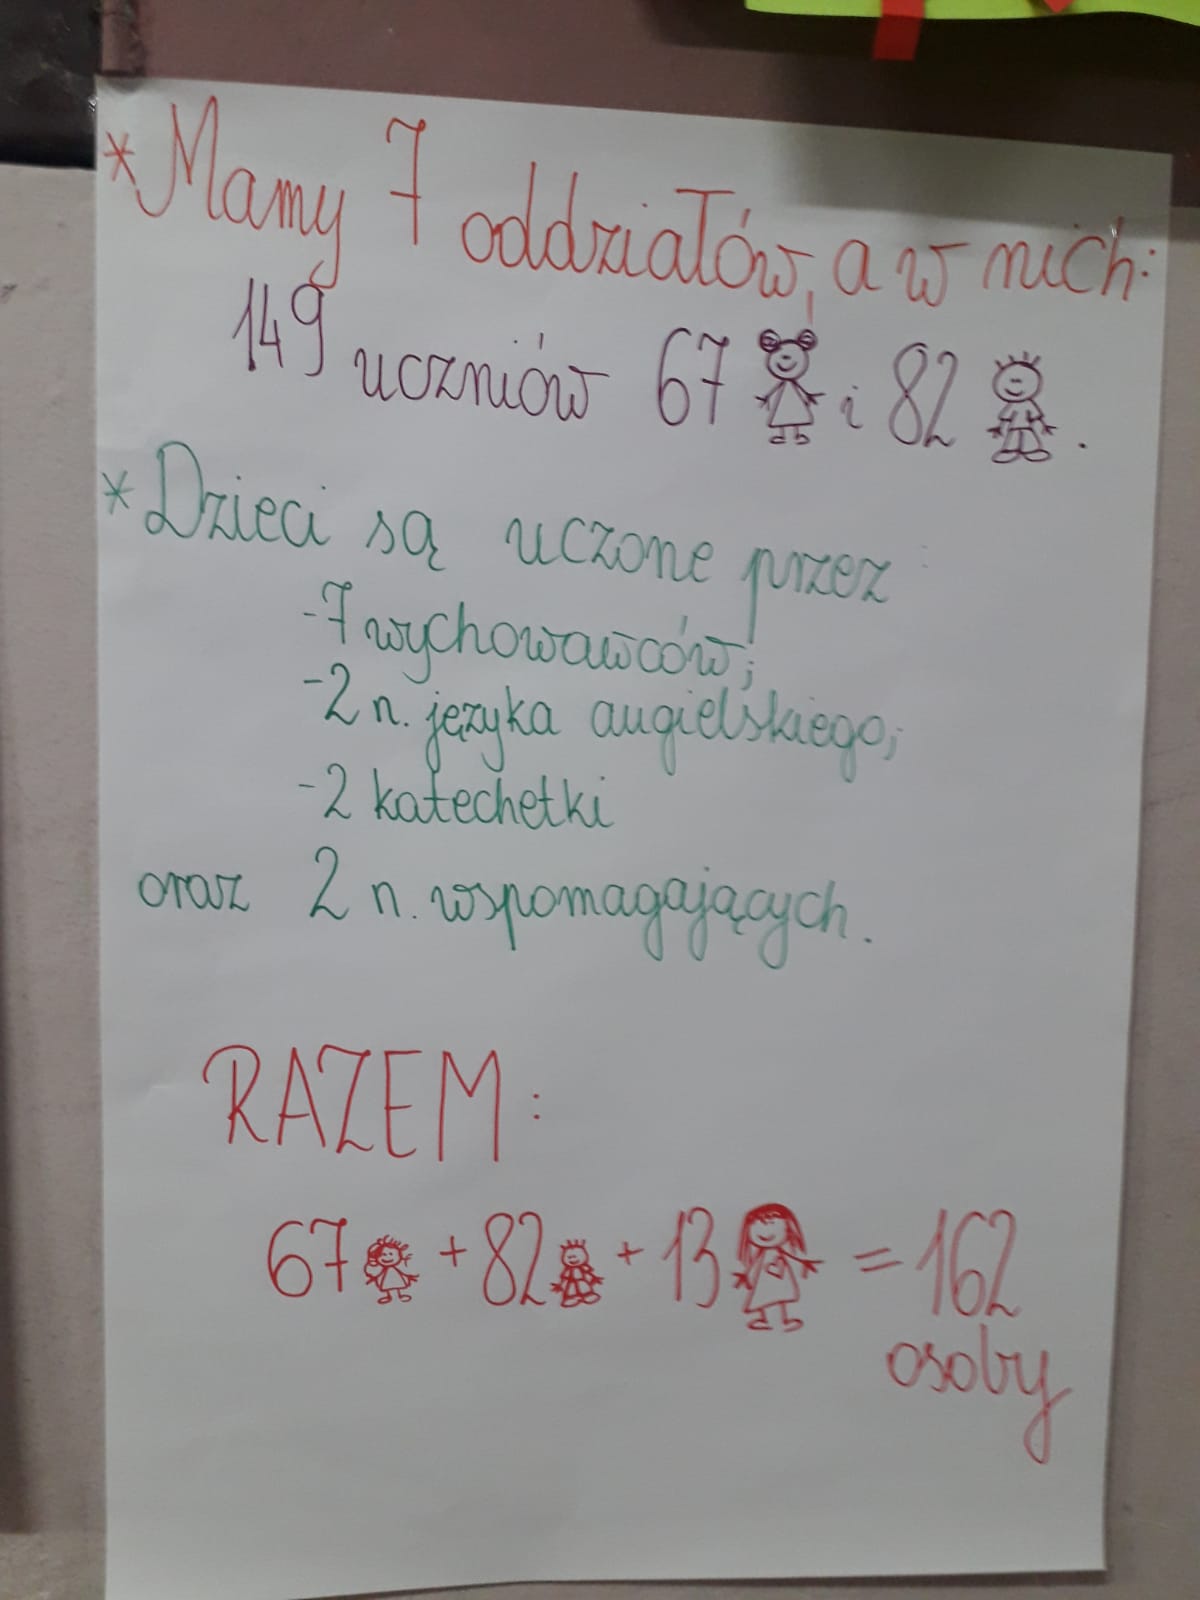 *Mamy 7 oddziałów, a w nich:
149 uczniów 67 i 82.
*Dzieci są uczone przez:
-7 wychowawców;
-2 n. języka angielskiego;
-2 katechetki
oraz 2 n. wspomagających.
RAZEM:
67 + 82 + 13 = 162
osoby